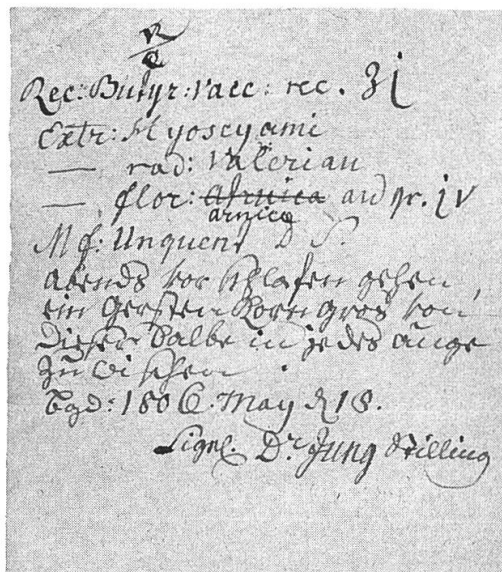 Rec: Butyr: vacc: rec. ʒi
Extr: Hyoscyami
— rad: Valerian
— flor: Arnica aa gr. iv
arnicæ
M f: Unguent D S.
abends vor schlafen gehen,
ein Gersten Korn gros von
dieser Salbe in jedes auge
zu wischen.
bgd: 1806. May d 18.
Sigel. Dr Jung Stilling